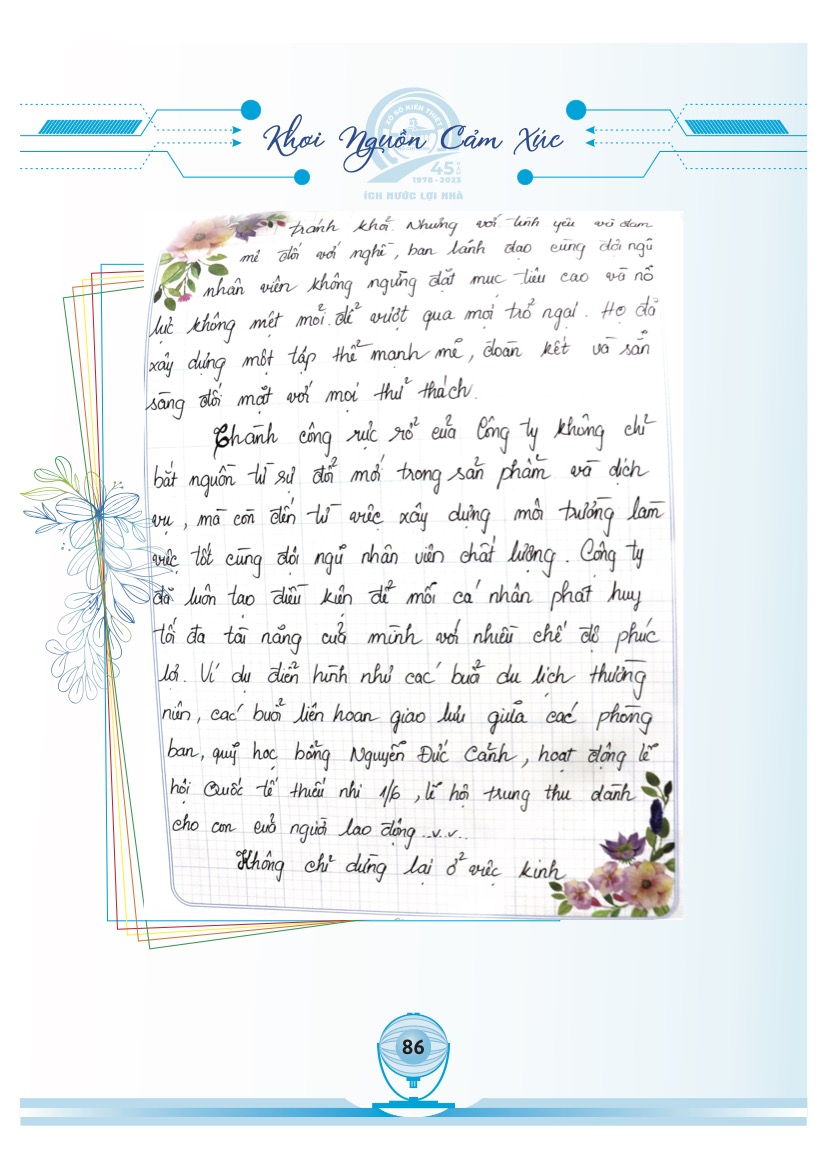 XỔ SỐ KIẾN THIẾT
Khơi Nguồn Cảm Xúc
45 NĂM
1978 - 2023
ÍCH NƯỚC LỢI NHÀ
tránh khỏi. Nhưng với tình yêu và đam
mê đối với nghề, ban lãnh đạo cùng đội ngũ
nhân viên không ngừng đặt mục tiêu cao và nỗ
lực không mệt mỏi để vượt qua mọi trở ngại. Họ đã
xây dựng một tập thể mạnh mẽ, đoàn kết và sẵn
sàng đối mặt với mọi thử thách.
Thành công rực rỡ của Công ty không chỉ
bắt nguồn từ sự đổi mới trong sản phẩm và dịch
vụ, mà còn đến từ việc xây dựng môi trường làm
việc tốt cùng đội ngũ nhân viên chất lượng. Công ty
đã luôn tạo điều kiện để mỗi cá nhân phát huy
tối đa tài năng của mình với nhiều chế độ phúc
lợi. Ví dụ điển hình như các buổi du lịch thường
niên, các buổi liên hoan giao lưu giữa các phòng
ban, quỹ học bổng Nguyễn Đức Cảnh, hoạt động lễ
hội Quốc tế thiếu nhi 1/6, lễ hội trung thu dành
cho con của người lao động...v.v...
Không chỉ dừng lại ở việc kinh
86